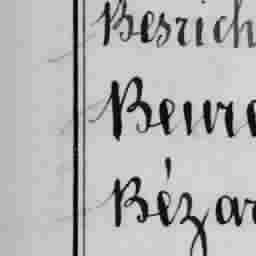 Besrich
Beure
Bézar